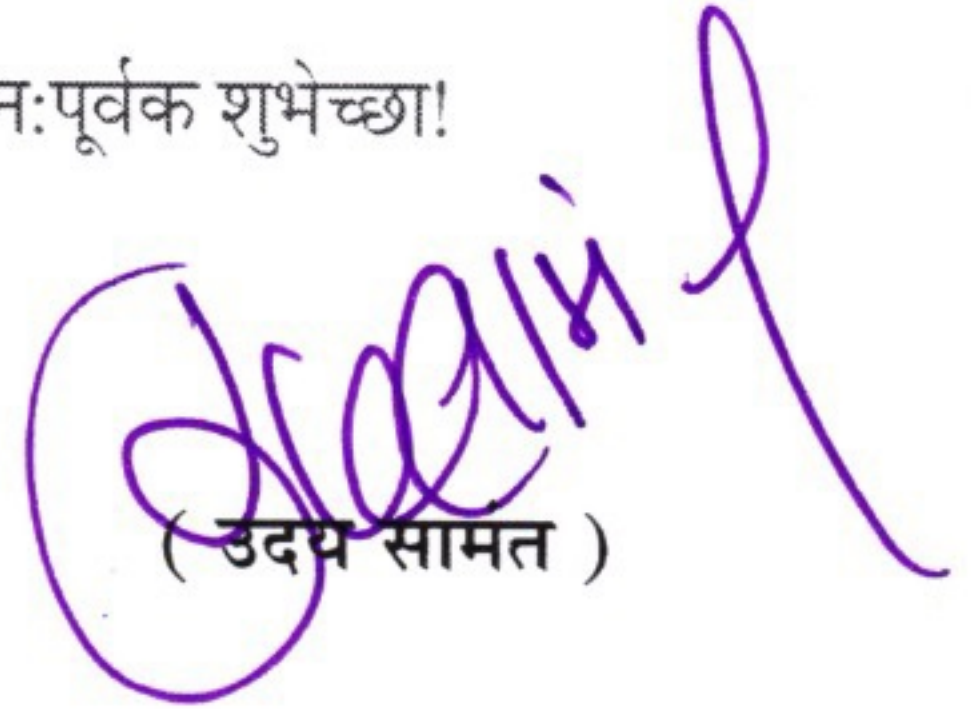 न:पूर्वक शुभेच्छा!
( उदय सामंत )